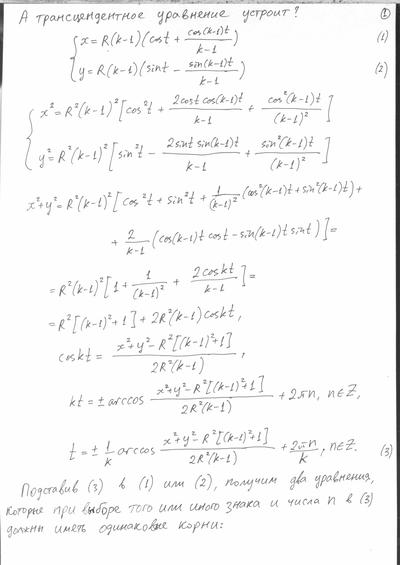 А трансцендентное уравнение устроит? ①
{ x = R(k-1)(cost + cos(k-1)t/(k-1)) (1)
y = R(k-1)(sint - sin(k-1)t/(k-1)) (2)
{ x² = R²(k-1)²[cos²t + 2cost cos(k-1)t/(k-1) + cos²(k-1)t/(k-1)²]
y² = R²(k-1)²[sin²t - 2sint sin(k-1)t/(k-1) + sin²(k-1)t/(k-1)²]
x²+y² = R²(k-1)²[cos²t + sin²t + 1/(k-1)² (cos²(k-1)t + sin²(k-1)t) +
+ 2/(k-1) (cos(k-1)t cost - sin(k-1)t sint)] =
= R²(k-1)²[1 + 1/(k-1)² + 2coskt/(k-1)] =
= R²[(k-1)²+1] + 2R²(k-1)coskt,
coskt = x²+y²-R²[(k-1)²+1]/2R²(k-1),
kt = ± arccos x²+y²-R²[(k-1)²+1]/2R²(k-1) + 2πn, n∈Z,
t = ± 1/k arccos x²+y²-R²[(k-1)²+1]/2R²(k-1) + 2πn/k, n∈Z. (3)
Подставив (3) в (1) или (2), получим два уравнения,
которые при выборе того или иного знака и числа n в (3)
должны иметь одинаковые корни: